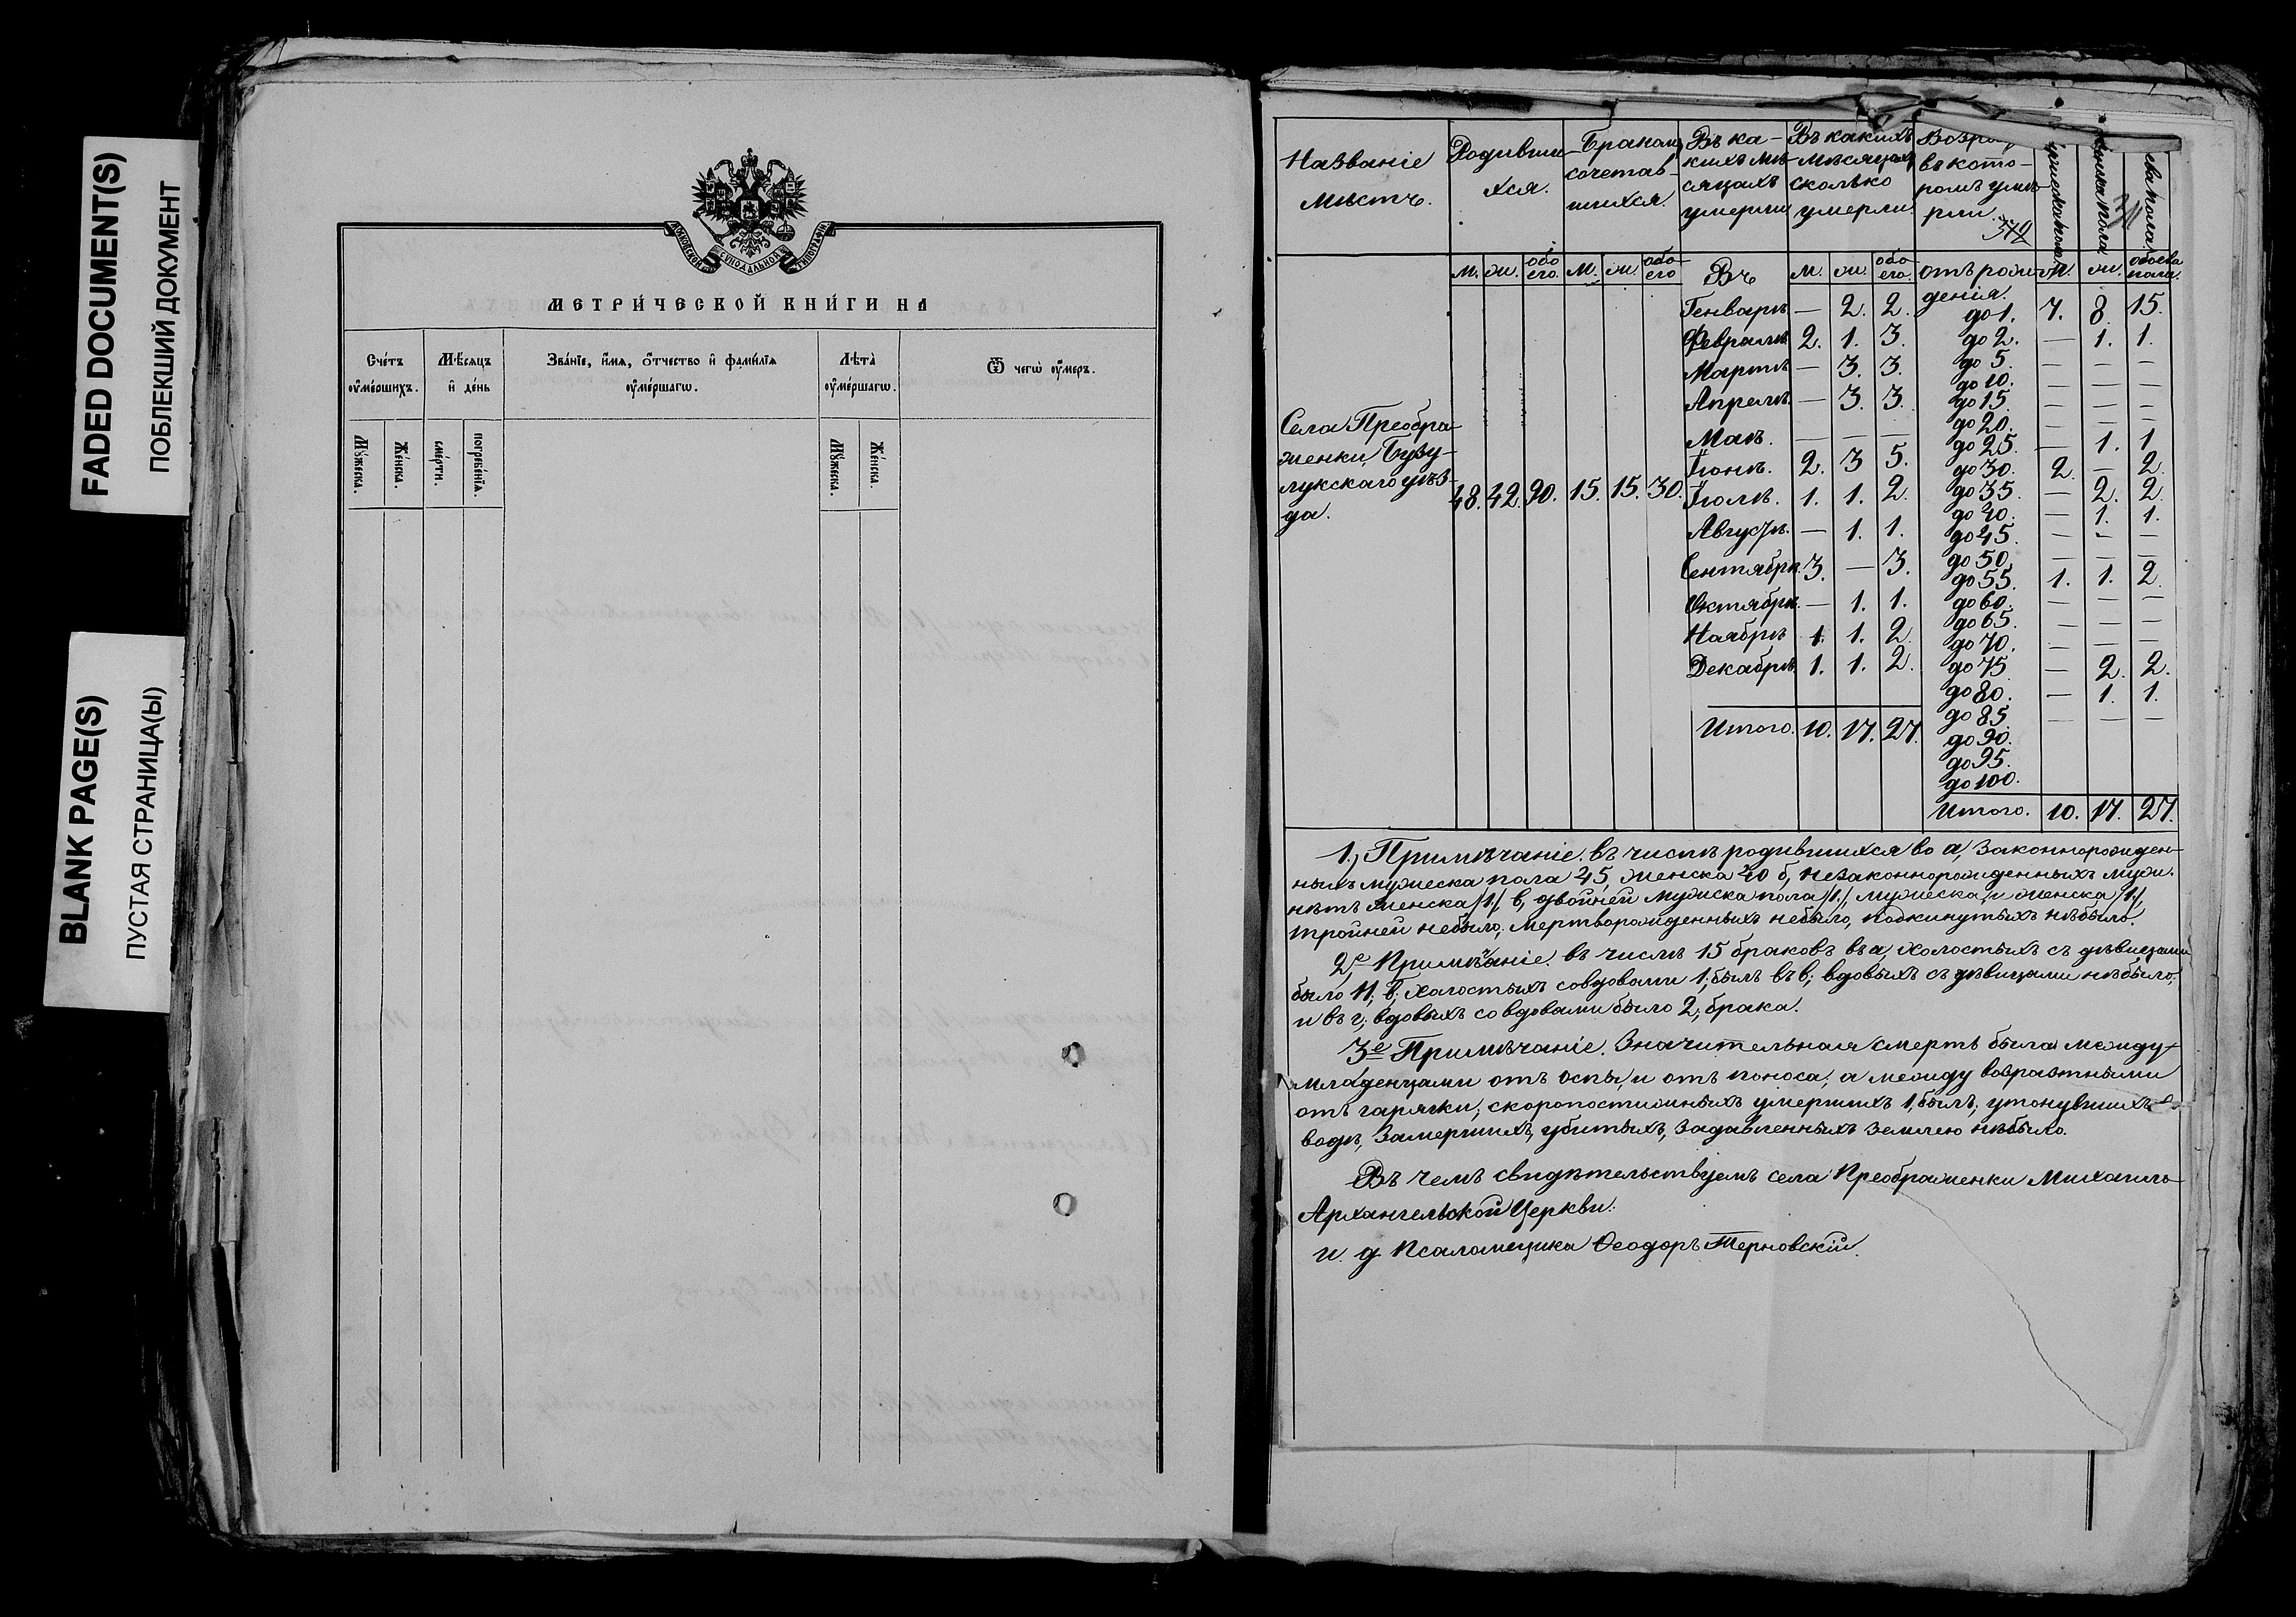 FADED DOCUMENT(S)
ПОБЛЕКШИЙ ДОКУМЕНТ
BLANK PAGE(S)
ПУСТАЯ СТРАНИЦА(Ы)
МОСКОВСКОЙ СѴНОДАЛЬНОЙ ТИПОГРАФІИ
МЕТРИ́ЧЕСКОЙ КНИ́ГИ НА
Счéтъ ᲂу҆мéршихъ.
Мѣ́сяцъ и҆ дéнь
Звáнїе, и҆́мѧ, ѻ҆́тчество и҆ фами́лїѧ ᲂу҆мéршагѡ.
Лѣ́та ᲂу҆мéршагѡ.
Ѿ чегѡ̀ ᲂу҆́меръ.
Мꙋ́жеска.
Жéнска.
смéрти.
погребéнїѧ.
Мꙋ́жеска.
Жéнска.
Названіе мѣстъ.
Родившихся.
Бракомъ сочетавшихся.
Въ какихъ мѣсяцахъ умерли
Въ какихъ мѣсяцахъ сколько умерли.
въ которомъ умерли.
372
м. ж. обоего. м. ж. обоего Въ м. ж. обоего. отъ рожденія. м. ж. обоева пола.
Села Преображенки, Бузулукскаго уѣзда.
48. 42. 90. 15. 15. 30.
Генварѣ — 2. 2.
Февралѣ 2. 1. 3.
Мартѣ — 3. 3.
Апрелѣ — 3. 3.
Маѣ. — — —
Іюнѣ. 2. 3 5.
Іюлѣ. 1. 1. 2.
Августѣ. — 1. 1.
Сентябрѣ. 3. — 3.
Октябрѣ. — 1. 1.
Наябрѣ 1. 1. 2.
Декабрѣ. 1. 1. 2.
Итого. 10. 17. 27.
до 1. 7. 8. 15.
до 2. — 1. 1.
до 5. — — —
до 10. — — —
до 15. — — —
до 20. — — —
до 25. — 1. 1
до 30. 2. — 2.
до 35. — 2. 2
до 40. — 1. 1.
до 45. — — —
до 50. — — —
до 55. 1. 1. 2.
до 60. — — —
до 65. — — —
до 70. — — —
до 75 — 2. 2.
до 80. — 1. 1.
до 85. — — —
до 90.
до 95.
до 100.
Итого. 10. 17. 27.
1.) Примѣчаніе. въ числѣ родившихся во а, законнорожден-
ныхъ мужеска пола 45, женска 40 б, незаконнорожденныхъ муж.
нѣтъ женска /1./, в, двойней мужска пола /1./, мужеска, и женска /1./,
тройней небыло, мертворожденныхъ небыло, подкинутыхъ небыло.
2е Примѣчаніе. въ числѣ 15 браковъ въ а, холостыхъ съ дѣвицами
было 11, б, холостыхъ совдовами 1, былъ въ в; вдовыхъ съ дѣвицами небыло;
и въ г; вдовыхъ со вдовами было 2, брака.
3е Примѣчаніе. Значительная смерть была между
младенцами отъ оспы, и отъ поноса, а между возрастными
отъ гарячки; скоропостижныхъ умершихъ 1, былъ; утонувшихъ в
водѣ, замерших, убитыхъ, задавленныхъ землею небыло.
Въ чемъ свидѣтельствуемъ села Преображенки Михаило-
Архангельской Церкви:
и. д. Псаломщика Ѳеодоръ Терновскій.